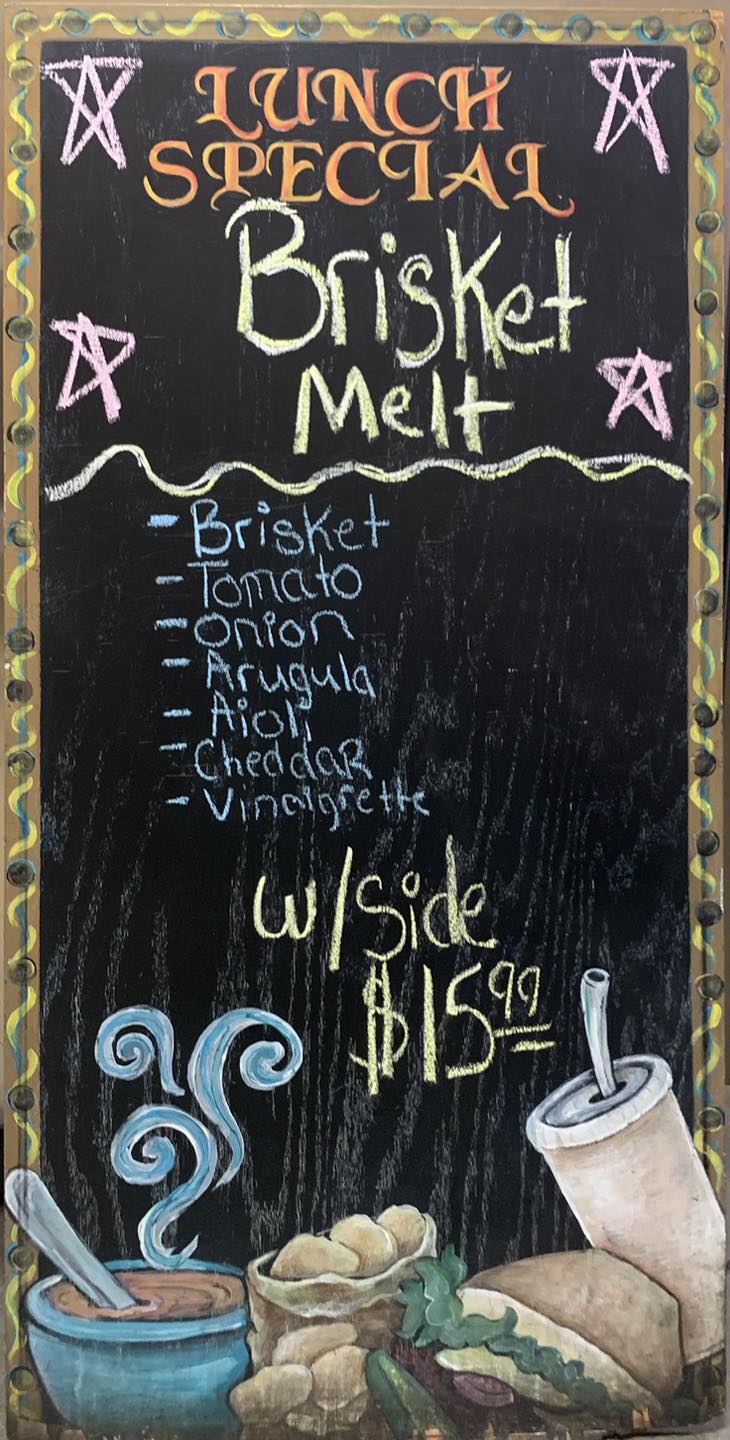 LUNCH
SPECIAL
Brisket
Melt
- Brisket
- Tomato
- Onion
- Arugula
- Aioli
- Cheddar
- Vinaigrette
w/Side
$15.99